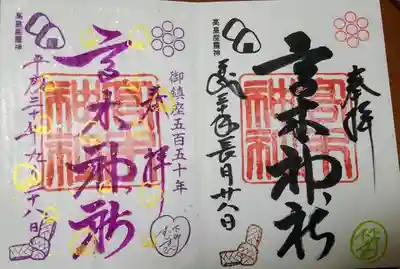 奉拝
高木神社
平成三十年長月廿八日
高皇産霊神
御鎮座五百五十年
奉拝
高木神社
平成三十年九月二十八日
高皇産霊神